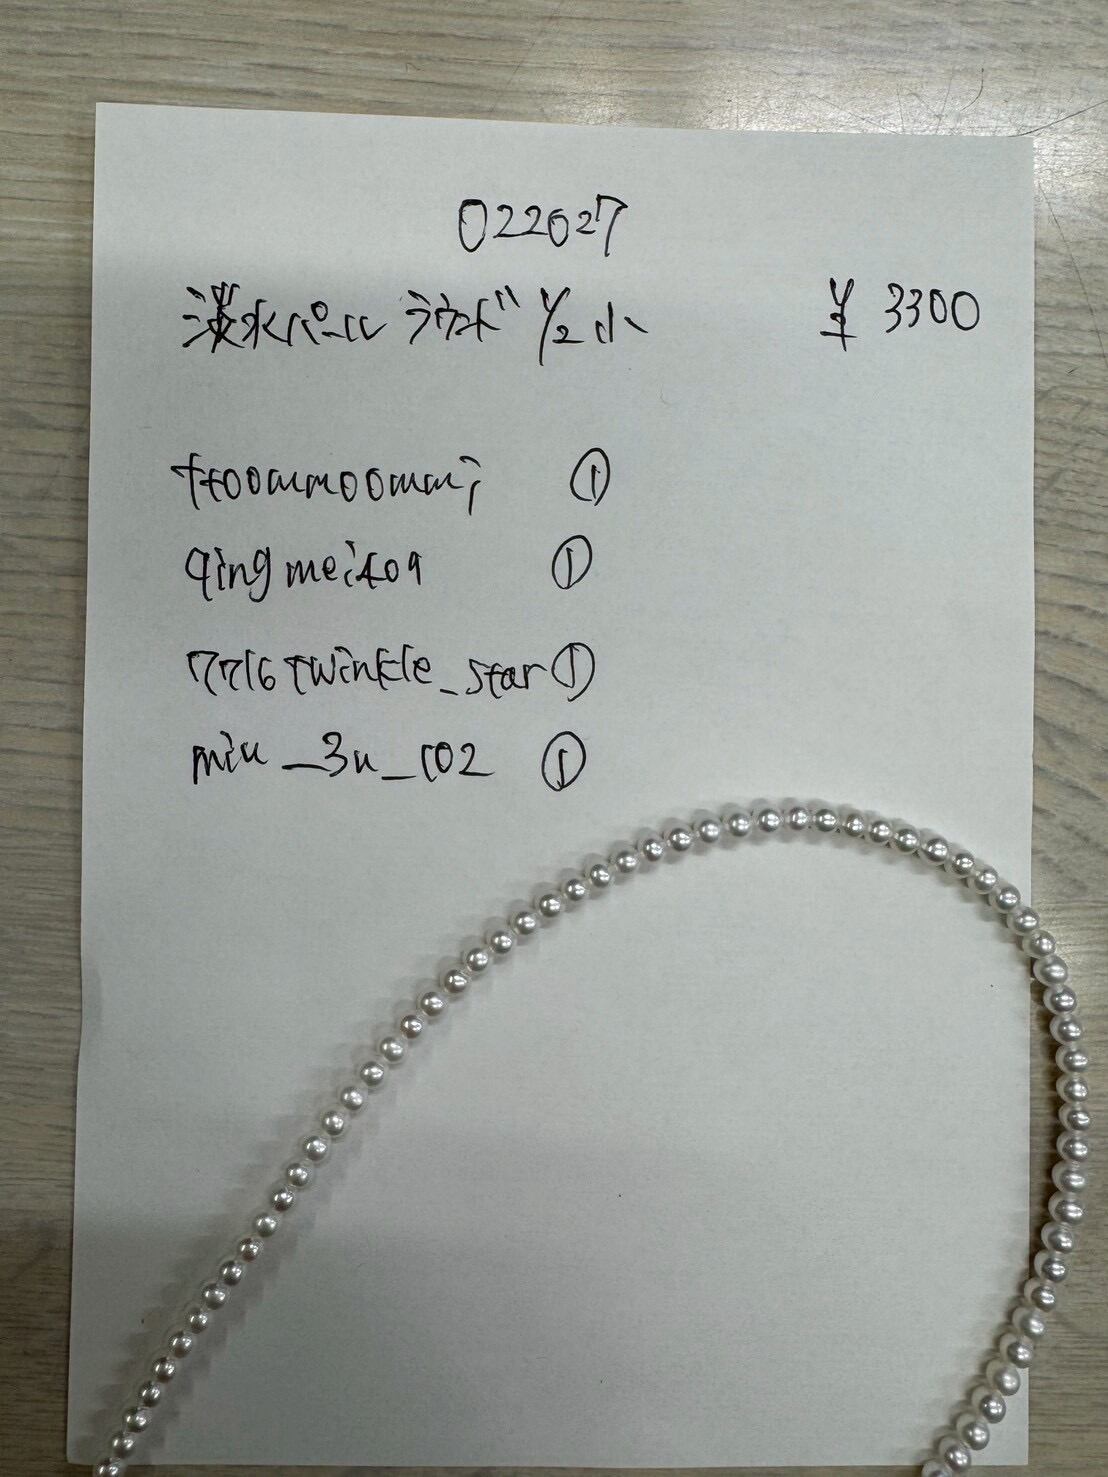 022027
淡水パール ラウンド 1/2 小 ¥ 3300
ttoommoommi ①
qingmeito9 ①
7716twinkle_star ①
miu_3u_102 ①